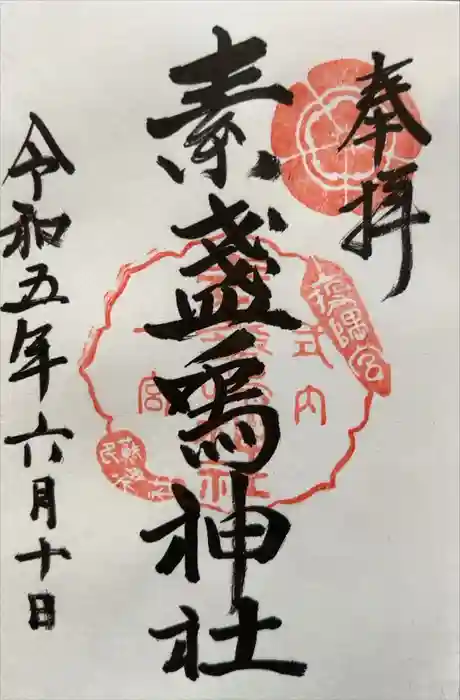 奉拝
素盞嗚神社
令和五年六月十日
式内
一宮